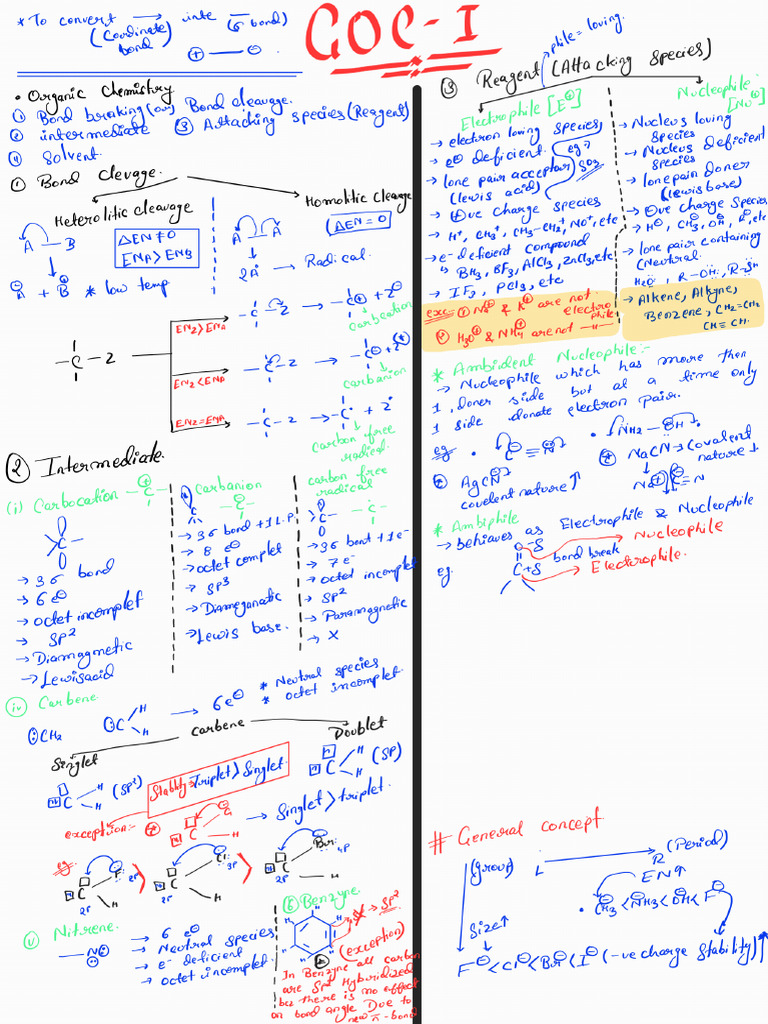 GOC-I
* To convert → into (σ bond)
(Coordinate bond)
⊕ — ⊖
• Organic Chemistry
① Bond braking (or) Bond cleavage.
② intermediate ③ Attacking species (Reagent)
④ Solvent.
① Bond Clevage.
Heterolitic cleavage
A — B
ΔEN ≠ 0
EN_A > EN_B
A⊖ + B⊕ * low temp
Homolitic cleavage
(ΔEN = 0)
A A
2A• → Radical.
-C-Z
EN_Z > EN_A
-C-Z → -C⊕ + Z⊖
Carbcation
EN_Z < EN_A
-C-Z → -C⊖ + Z⊕
carbanion
EN_Z = EN_A
-C-Z → -C• + Z•
carbon free radical.
② Intermediate.
(i) Carbocation -C⊕-
→ 3σ bond
→ 6e⊖
→ octet incomplet
→ SP²
→ Diamagnetic
→ Lewisacid
Carbanion
→ 3σ bond + 1 L.P
→ 8 e⊖
→ octet complet
→ SP³
→ Diameganatic
→ Lewis base.
carbon free radical
→ 3σ bont + 1e⁻
→ 7e⁻
→ octet incomplet
→ SP²
→ Paramagnetic
→ X
(iv) Carbene
:CH₂ :C H H → 6e⊖
* Neutral species
* octet incomplet.
carbene
Singlet
C H H (SP²)
Doublet
C H H (SP)
Stability → Triplet > Singlet.
exception:- C H → Singlet > triplet.
eg
C F H 2P 2P > C Cl H 2P 3P > C Br H 2P 4P
(v) Nitrene.
—N
→ 6 e⊖
→ Neutral species
→ e⁻ deficient
→ octet incomplet.
⑥ Benzyne.
→ SP²
(exception)
In Benzyne all carbon
are SP² Hybiridized
bcz there is no effect
on bond angle Due to
new π-bond
③ Reagent (Attacking Species)
phile = loving.
Electrophile [E⊕]
→ electron loving species
→ e⊖ deficient.
→ lone pair acceptor
(lewis acid)
eg → SO₃
→ ⊕ve charge species
→ H⁺, CH₃⁺, CH₃-CH₂⁺, NO⁺, etc
→ e⁻ deficient compound
↳ BH₃, BF₃, AlCl₃, ZnCl₂, etc
→ IF₇, PCl₅, etc
exc = ① Na⊕ & K⊕ are not electrophile
② H₃O⊕ & NH₄⊕ are not —H—
Nucleophile [Nu⊖]
→ Nucleus loving species
→ Nucleus deficient species
→ lone pain doner
(lewis base)
→ ⊖ve charge Species
→ lone pair containing
(Neutral.
H₂O, R-OH,
→ Alkene, Alkyne,
Benzene, CH₂=CH₂
CH≡CH.
* Ambident Nucleophile:-
→ Nucleophile which has more then
1, doner side but at a time only
1 side donate electron pair.
eg • C≡N • NH₂-OH
AgCN
covelent nature ↑
NaCN → (covalent nature ↓
Na⊕ C≡N
* Ambiphile
→ behaves as Electrophile & Nucleophile
eg. O -δ → Nucleophile
bond break
C +δ → Electrophile.
# General concept
(group)
L → R (Period)
EN ↑
Size ↑
• CH₃⊖ < NH₃⊖ < OH⊖ < F⊖
F⊖ < Cl⊖ < Br⊖ < I⊖ (-ve charge Stability) ↑